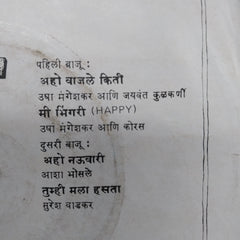 पहिली बाजू :
अहो वाजले किती
उषा मंगेशकर आणि जयवंत कुळकर्णी
मी भिंगरी (HAPPY)
उषा मंगेशकर आणि कोरस
दुसरी बाजू :
अहो नऊवारी
आशा भोसले
तुम्ही मला हसता
सुरेश वाडकर